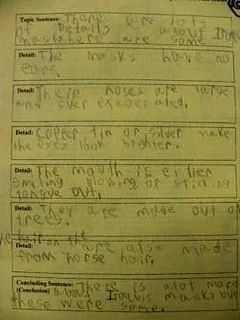 Topic Sentence: There are lots
of details about Iroquis
masks here are some.
Detail: The masks have no
ears.
Detail: Their noses are large
and over exaderated.
Detail: Copper, tin or silver make
the eyes look brighter.
Detail: The mouth is either
smiling or sticking
tongue out.
Detail: They are made out of
trees.
hair on the
Detail: are also made
from horse hair.
Concluding Sentence: there is alot more
(Conclusion) about Iroquis masks but
these were some.